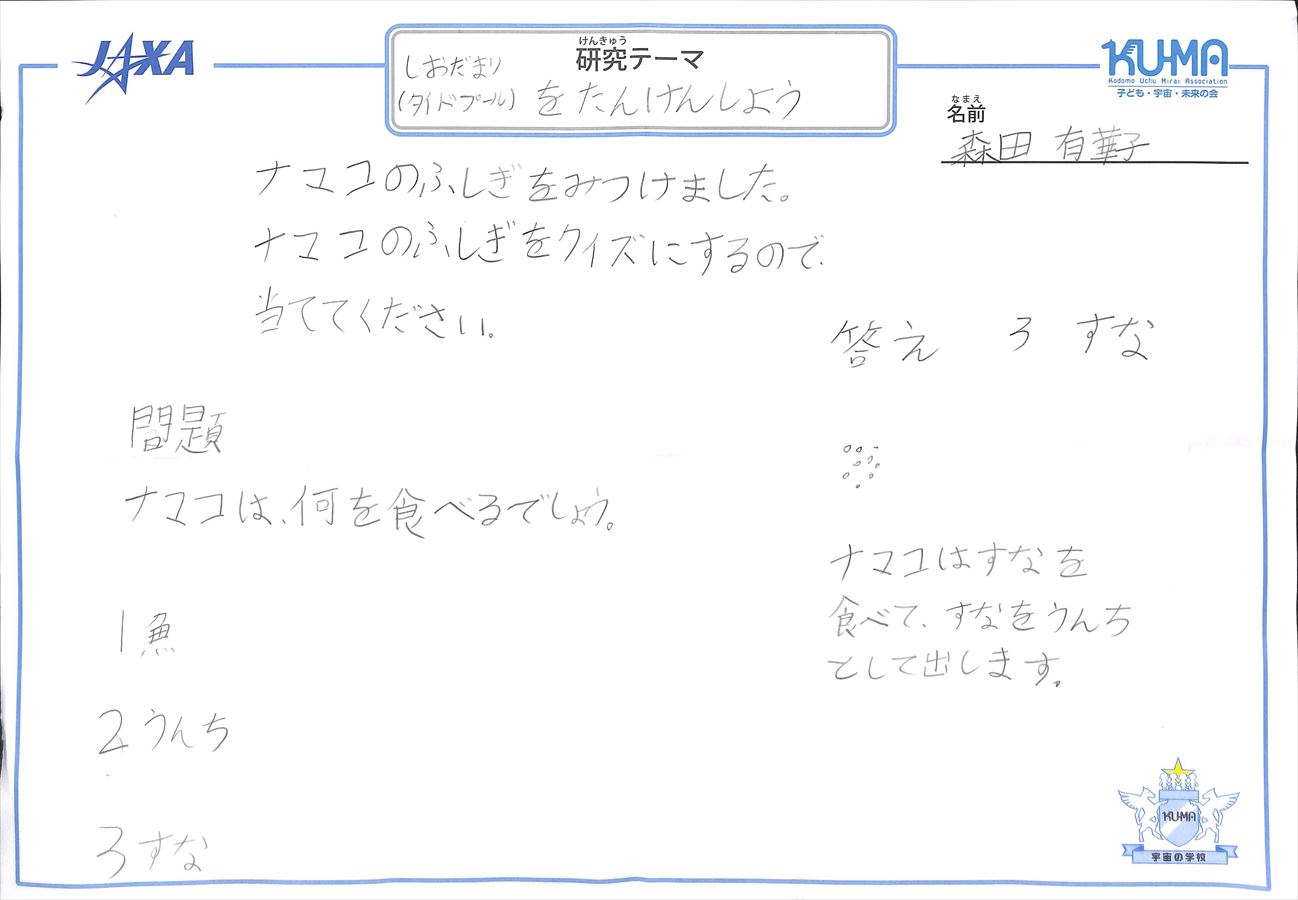 JAXA
けんきゅう
研究テーマ
しおだまり
(タイドプール) をたんけんしよう
KU-MA
Kodomo Uchu Mirai Association
子ども・宇宙・未来の会
なまえ
名前
森田 有華子
ナマコのふしぎをみつけました。
ナマコのふしぎをクイズにするので、
当ててください。
問題
ナマコは、何を食べるでしょう。
1 魚
2 うんち
3 すな
答え 3 すな
ナマコはすなを
食べて、すなをうんち
として出します。
KU-MA
宇宙の学校